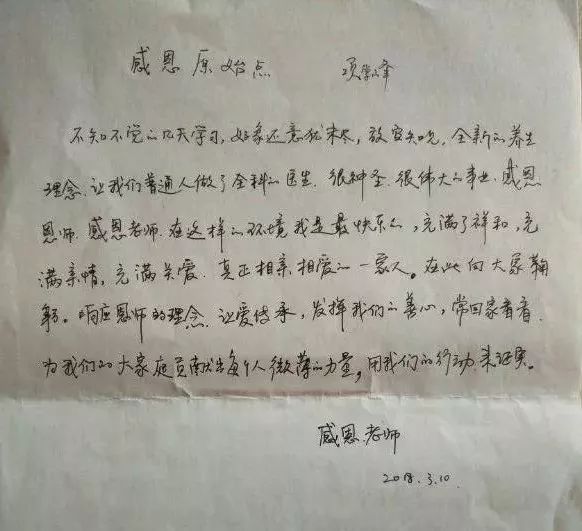 感恩原始点 项学峰
不知不觉的几天学习,好象还意犹未尽,放宽知晓,全新的养生
理念,让我们普通人做了全科的医生,很神圣,很伟大的事业,感恩
恩师,感恩老师,在这样的环境我是最快乐的,充满了祥和,充
满亲情,充满关爱,真正相亲相爱的一家人。在此向大家鞠
躬。响应恩师的理念,让爱传承,发挥我们的善心,常回家看看,
为我们的大家庭贡献出每个人微薄的力量,用我们的行动来证实。
感恩老师
2018.3.10